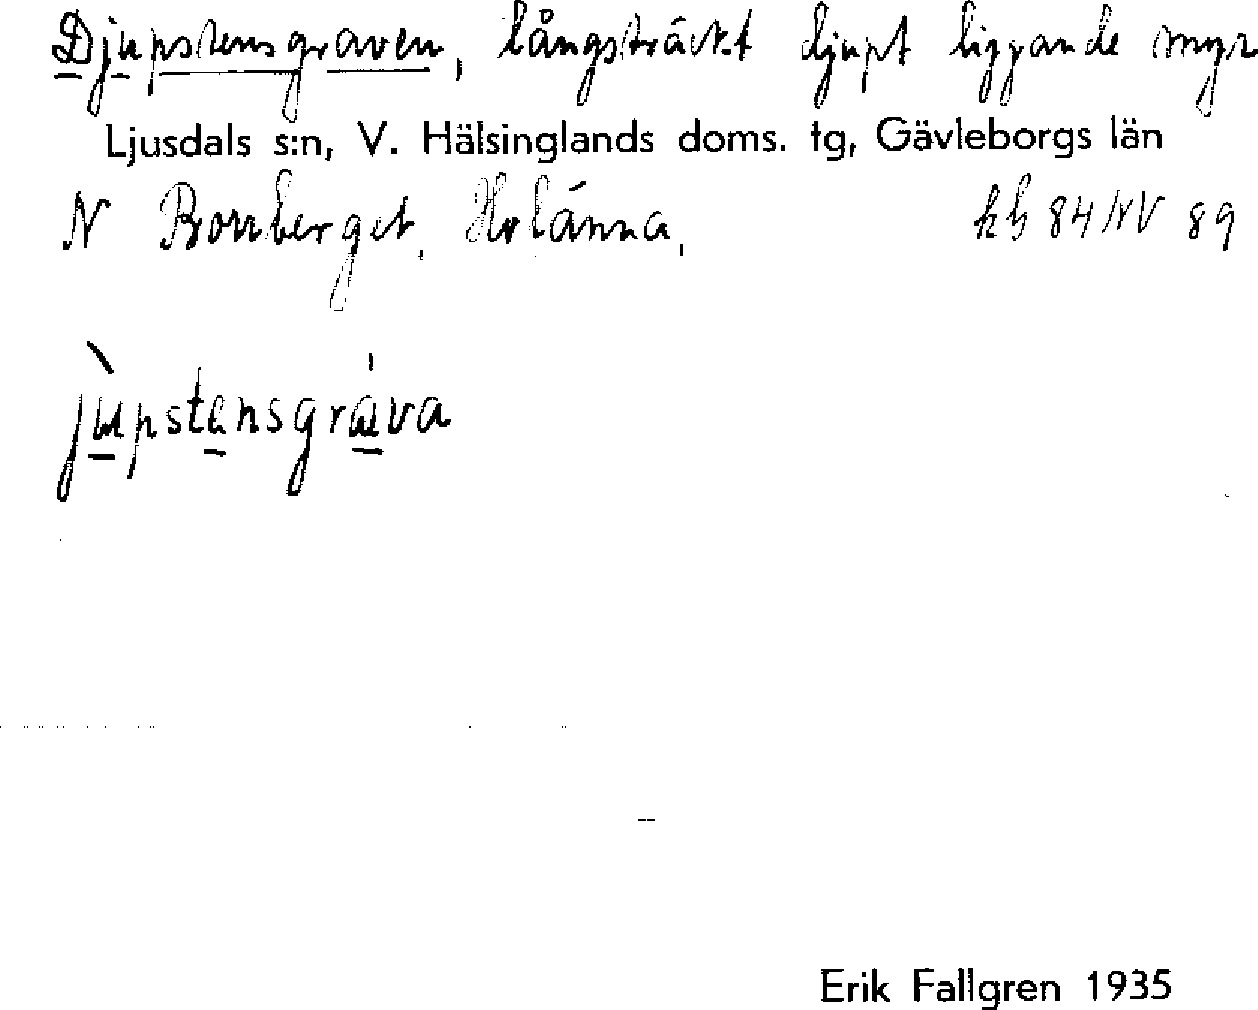 Djupstensgraven, långsträckt djupt liggande myr
Ljusdals s:n, V. Hälsinglands doms. tg, Gävleborgs län
N Borrberget, Hvlänna, kb 84 NV 89
jupstensgrava
Erik Fallgren 1935